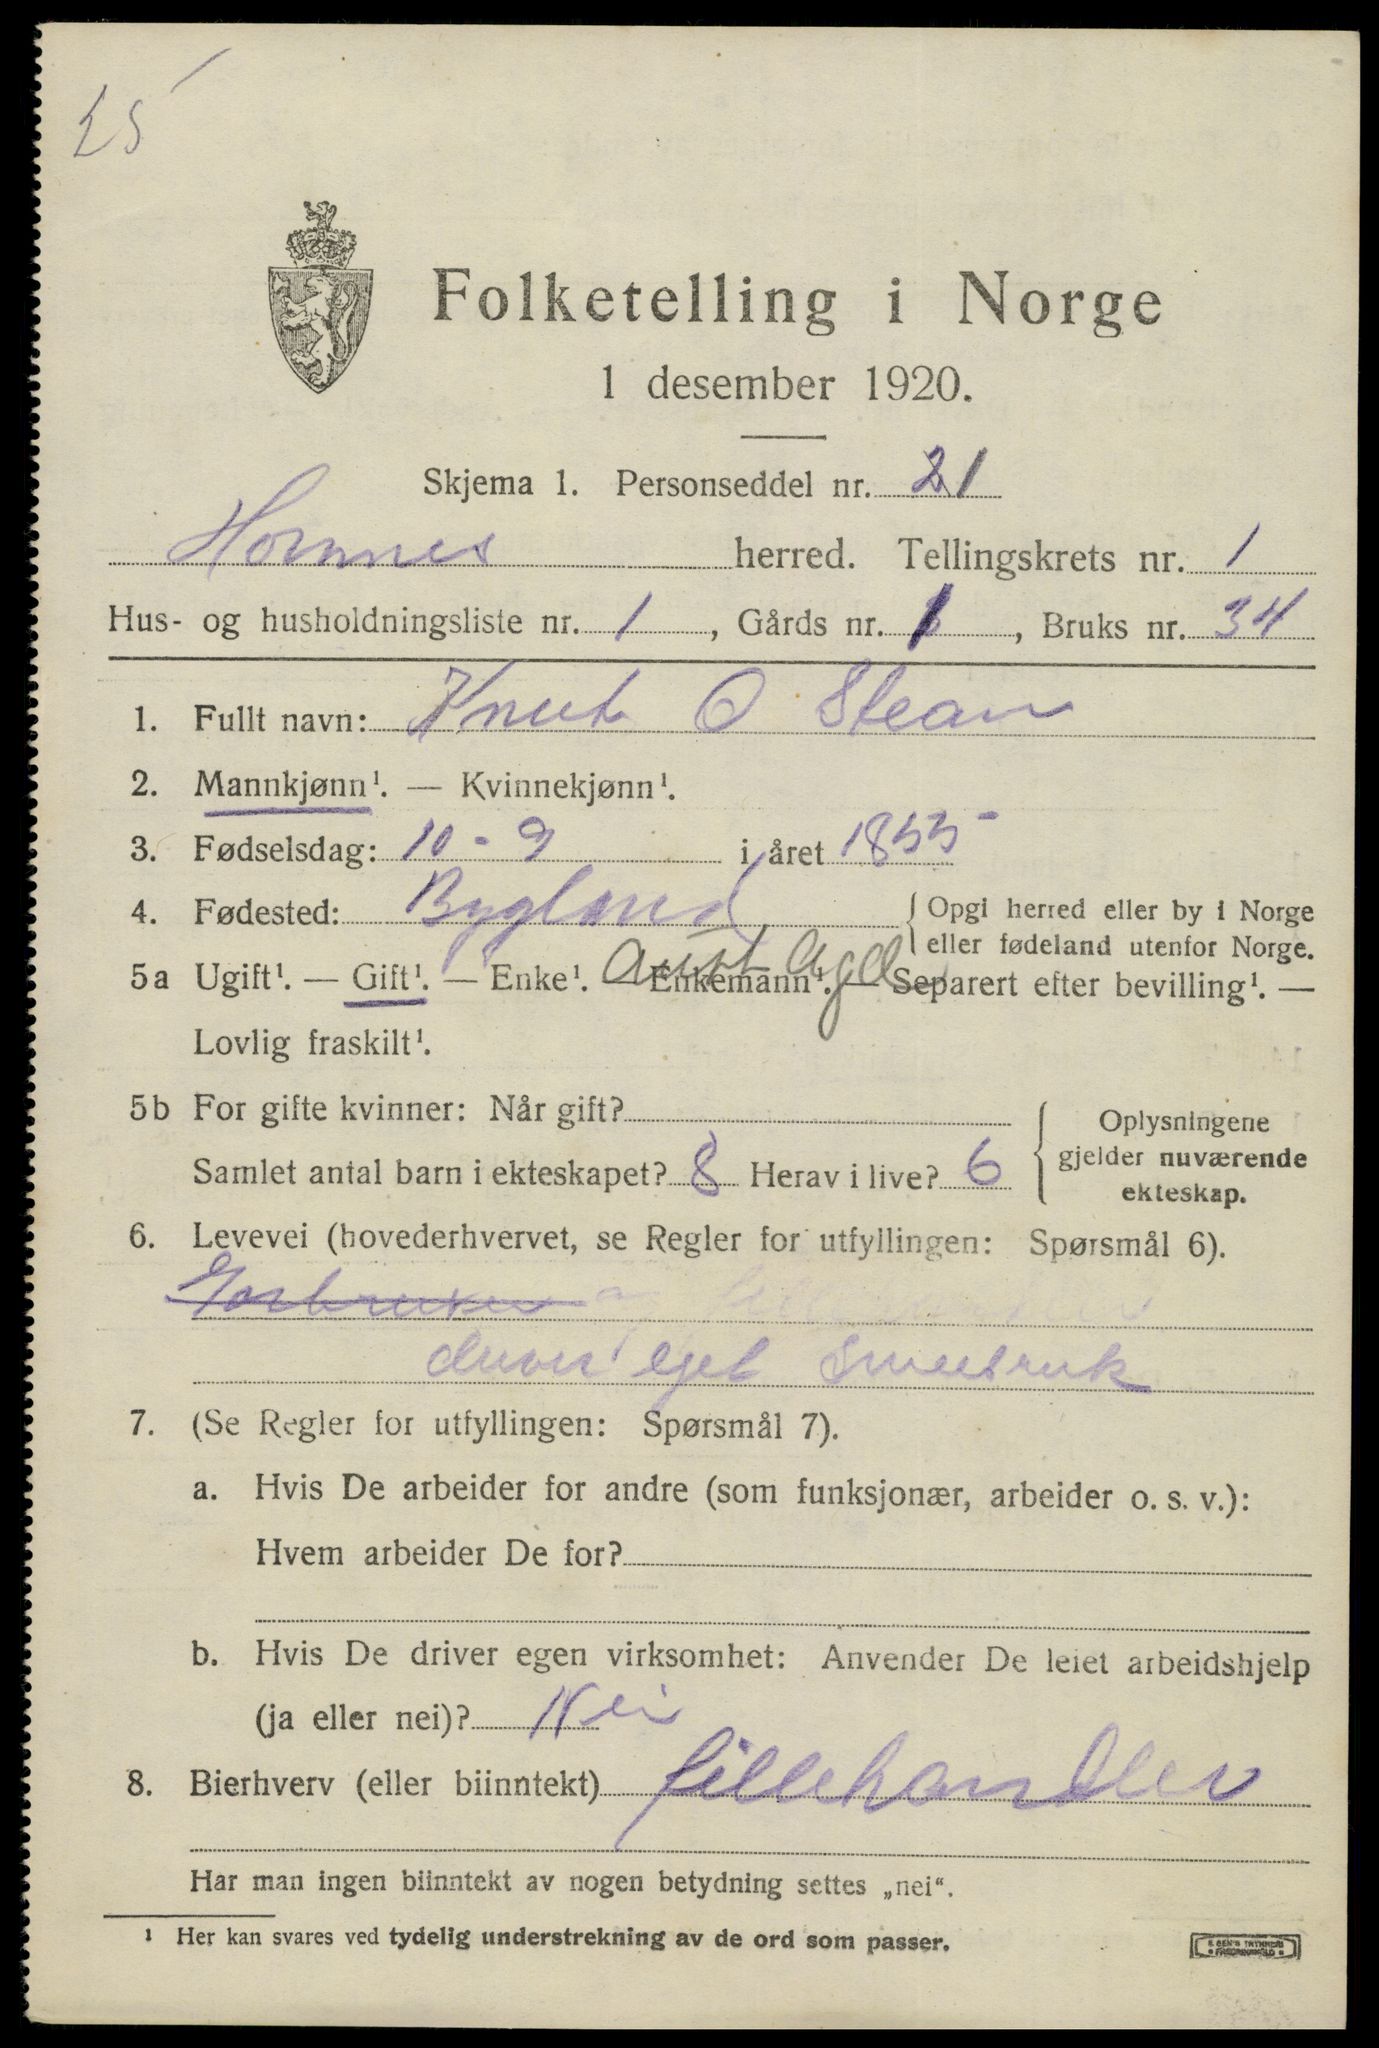 25
Folketelling i Norge
1 desember 1920.
Skjema 1. Personseddel nr. 21
Hornnes herred. Tellingskrets nr. 1
Hus- og husholdningsliste nr. 1, Gårds nr. 1, Bruks nr. 34
1. Fullt navn: Knut O Stean
2. Mannkjønn¹. — Kvinnekjønn¹.
3. Fødselsdag: 10 - 9 i året 1855
4. Fødested: Bygland { Opgi herred eller by i Norge
eller fødeland utenfor Norge.
Aust Agd
5a Ugift¹. — Gift¹. — Enke¹. — Enkemann¹. — Separert efter bevilling¹. —
Lovlig fraskilt¹.
5b For gifte kvinner: Når gift?
Samlet antal barn i ekteskapet? 8 Herav i live? 6
Oplysningene
gjelder nuværende
ekteskap.
6. Levevei (hovederhvervet, se Regler for utfyllingen: Spørsmål 6).
Gårbruker og
driver eget
7. (Se Regler for utfyllingen: Spørsmål 7).
a. Hvis De arbeider for andre (som funksjonær, arbeider o. s. v.):
Hvem arbeider De for?
b. Hvis De driver egen virksomhet: Anvender De leiet arbeidshjelp
(ja eller nei)? Nei
8. Bierhverv (eller biinntekt) fillehandler
Har man ingen biinntekt av nogen betydning settes „nei“.
¹ Her kan svares ved tydelig understrekning av de ord som passer.